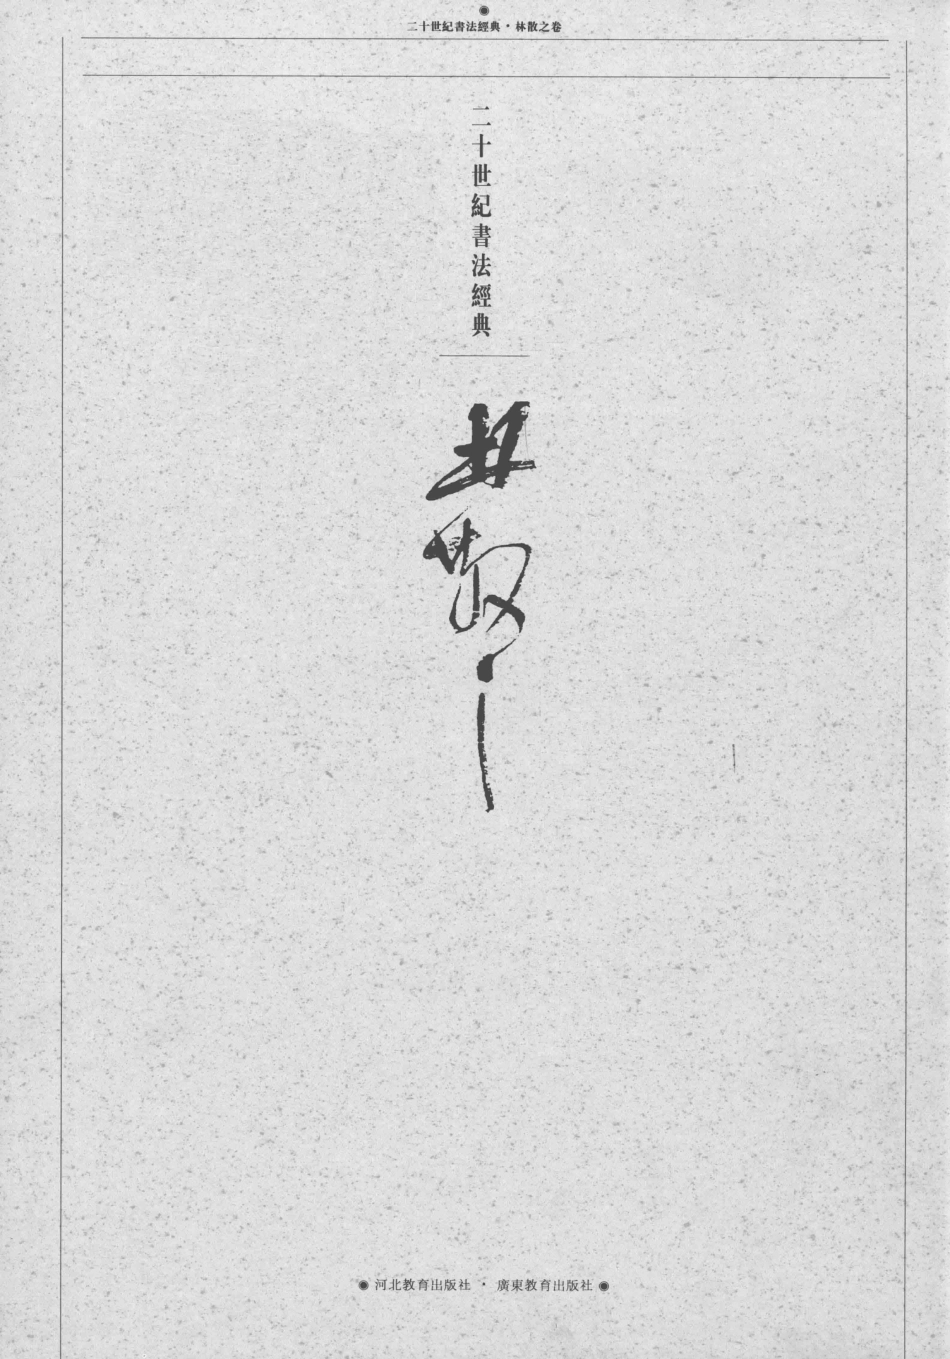 二十世紀書法經典・林散之卷
二十世紀書法經典
林散之
河北教育出版社 · 廣東教育出版社